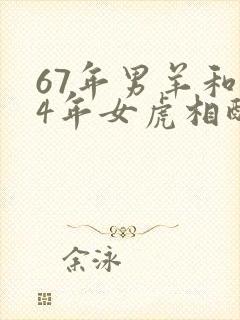 67年男羊和
4年女虎相配
余泳